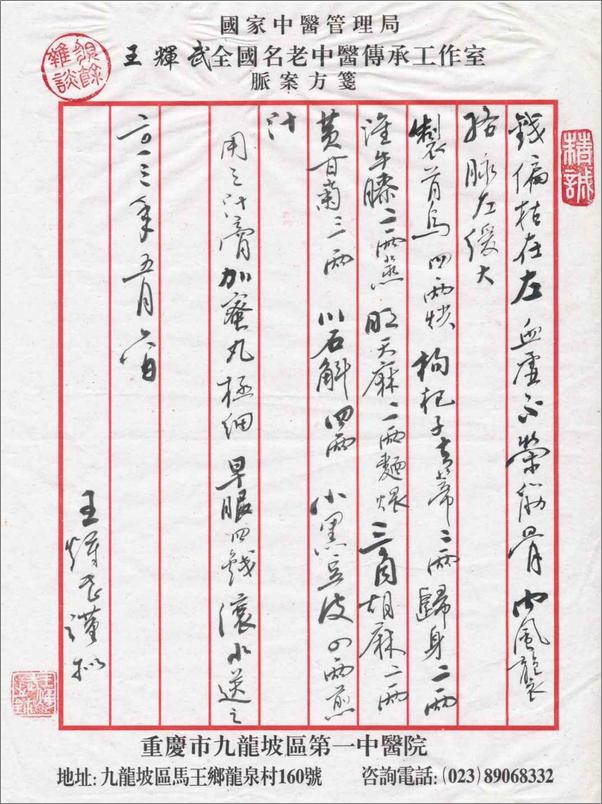 國家中醫管理局
王輝武全國名老中醫傳承工作室
脈案方箋
錢偏枯在左血虛不榮筋骨內風襲
絡脉左緩大
製首烏四兩烘枸杞子去蒂二兩歸身二兩
淮牛膝二兩蒸明天麻二兩麵煨三角胡麻二兩
黄甘菊三兩川石斛四兩小黑豆皮四兩煎
汁
用三汁膏加蜜丸極細早服四錢滚水送之
二〇一三年五月六日
王輝武謹擬
精誠
雜談
重慶市九龍坡區第一中醫院
地址:九龍坡區馬王鄉龍泉村160號 咨詢電話:(023)89068332